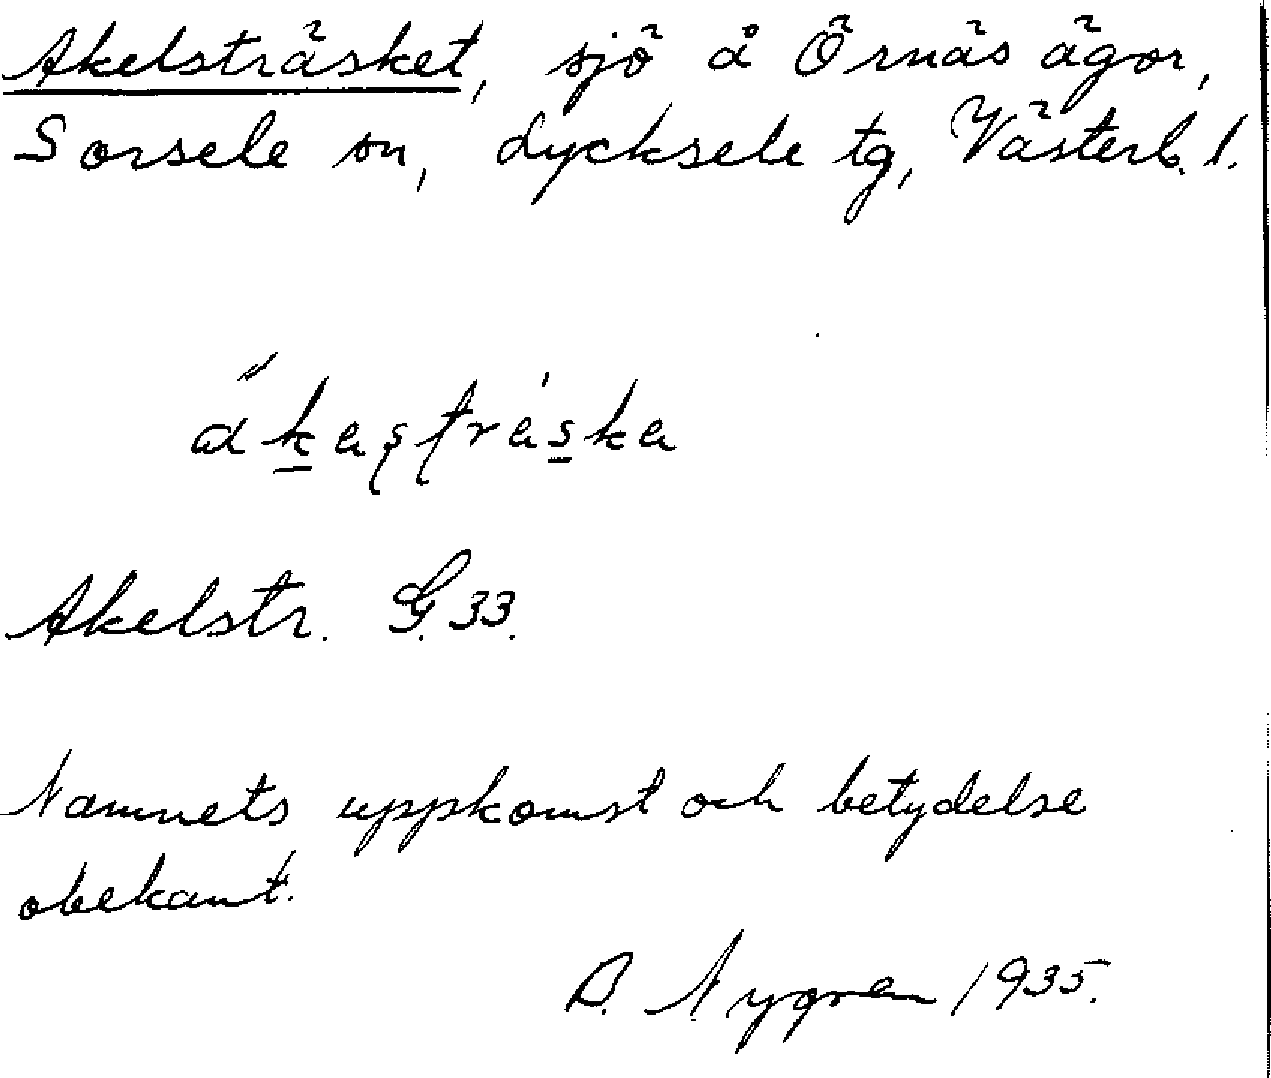 Akelsträsket, sjö å Örnäs ägor,
Sorsele sn, Lycksele tg, Västerb. l.
Akelstr. G. 33.
Namnets uppkomst och betydelse
obekant.
Nygren 1935.